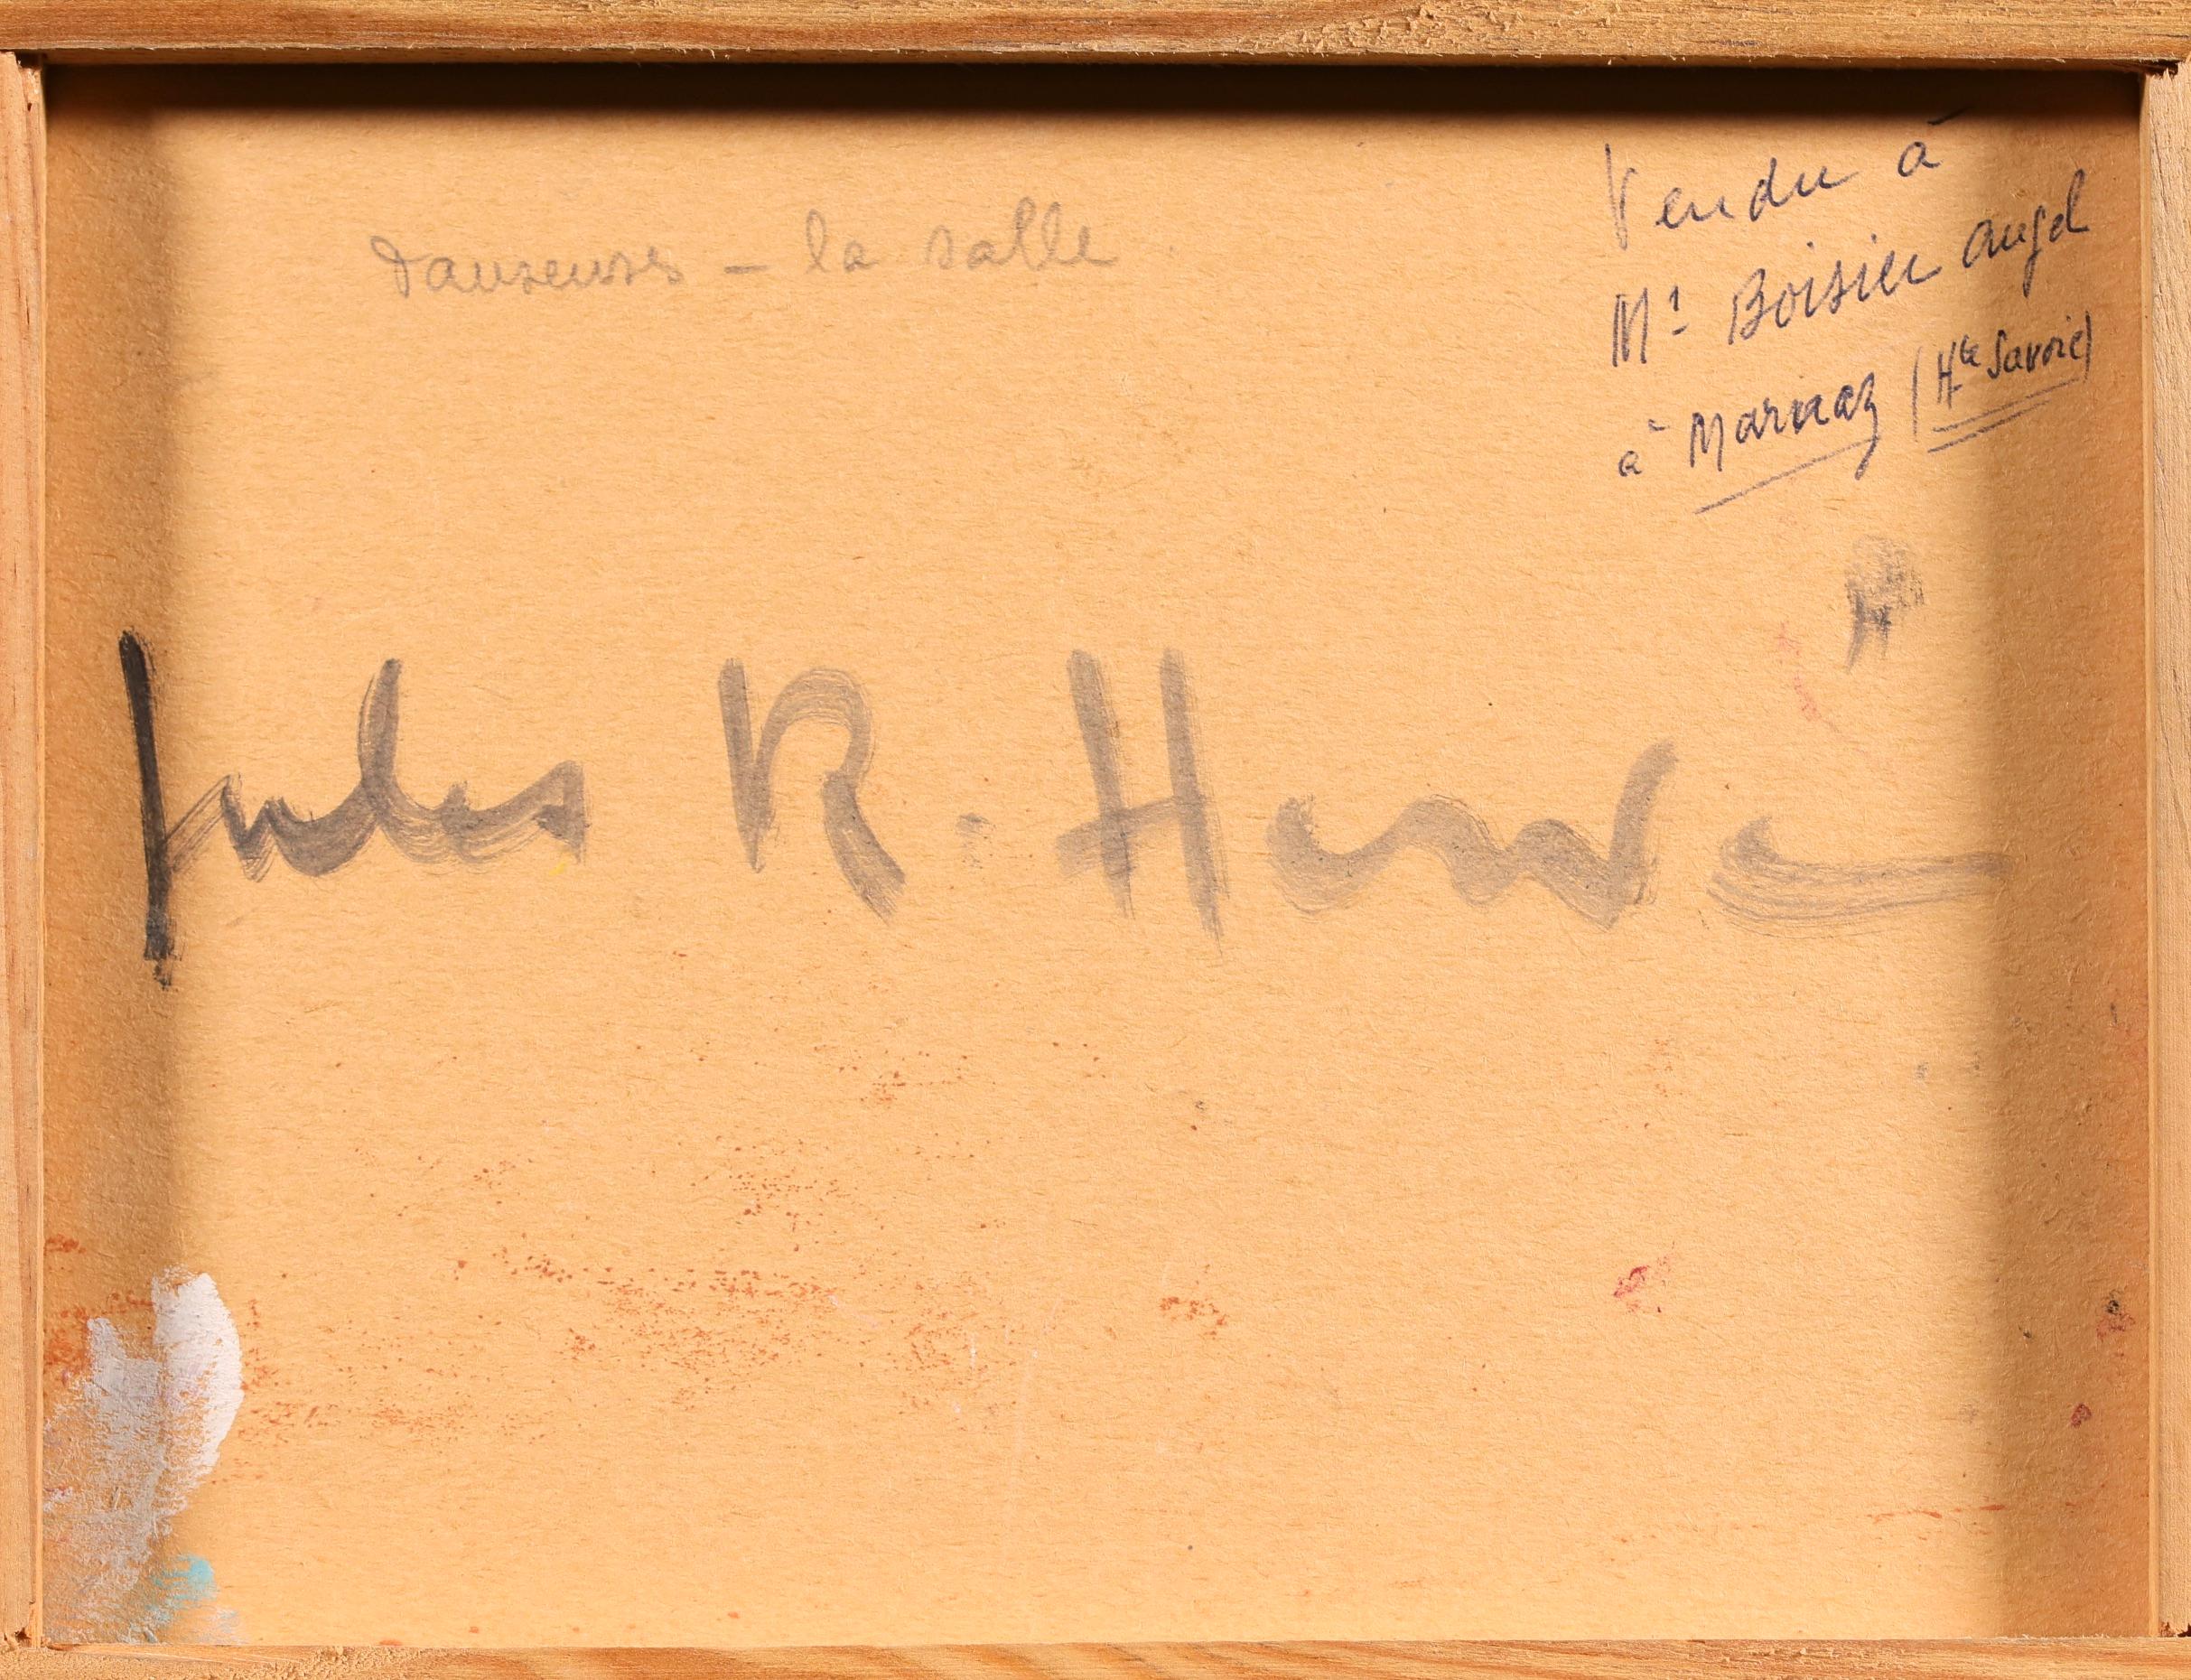 danseuses - la salle
Vendu à
Mr Boisier Angel
à Marnaz (Hte Savoie)
Jules R. Hervé